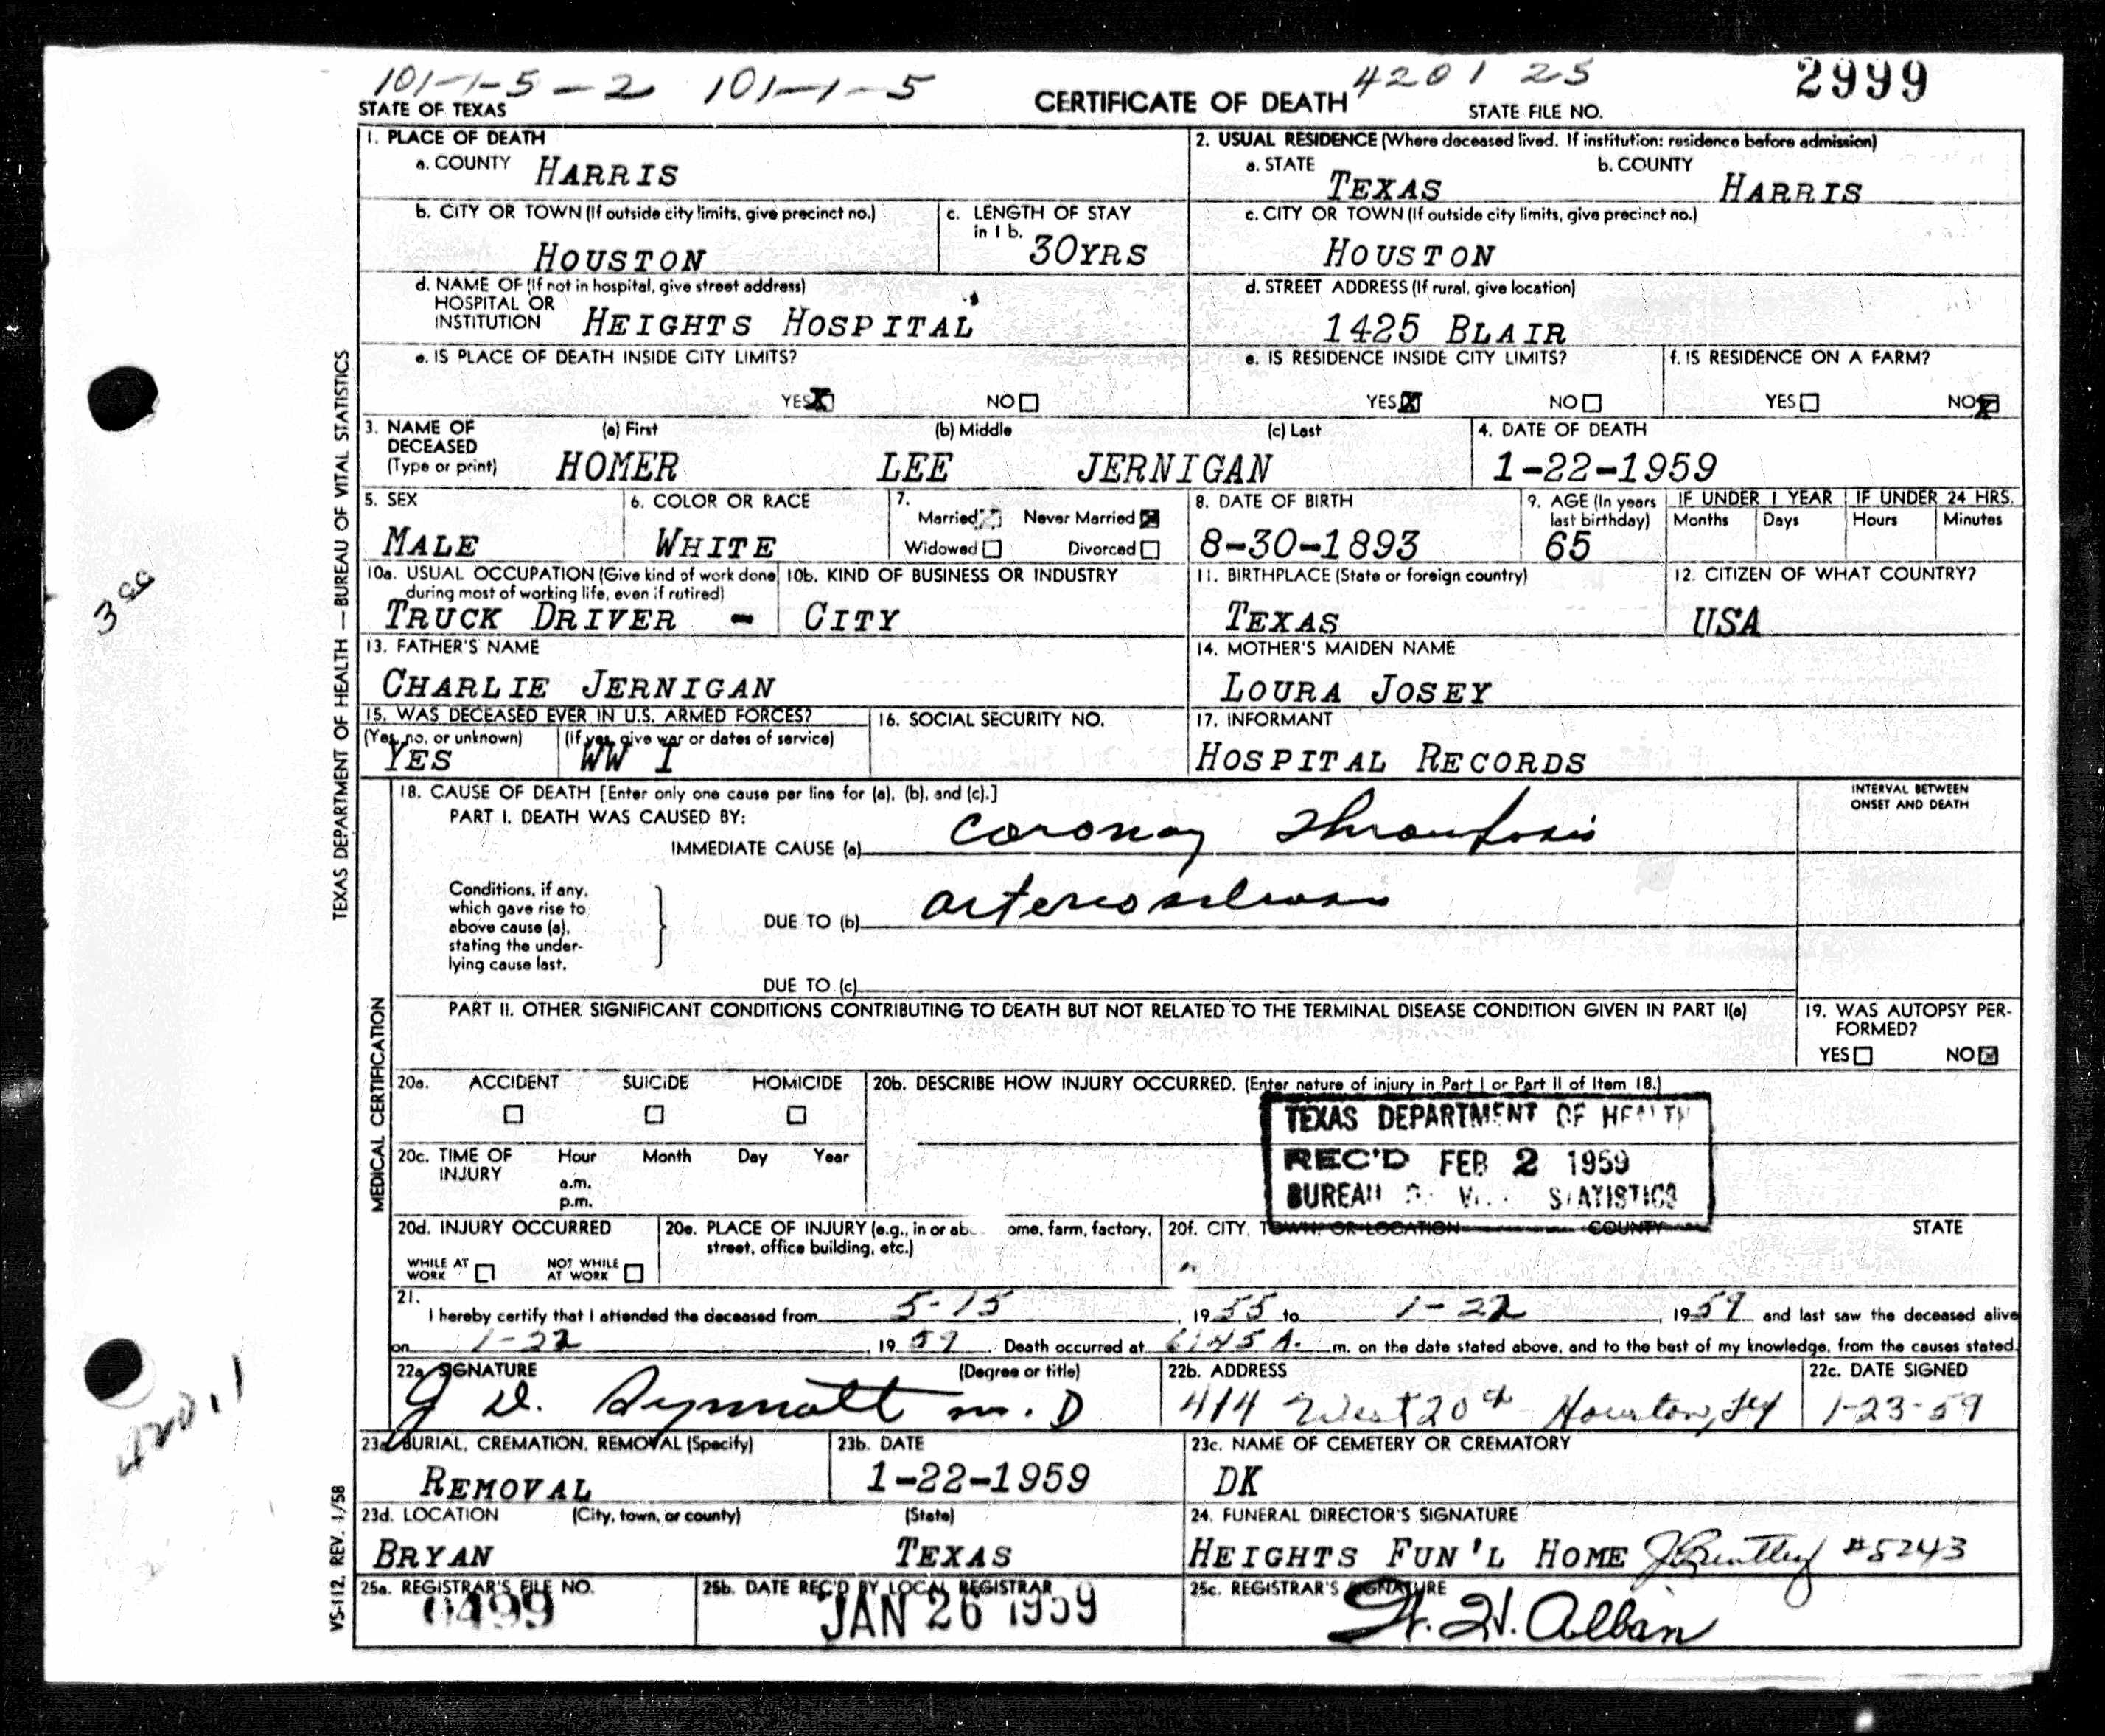 101-1-5-2 101-1-5 4201 25 2999
STATE OF TEXAS CERTIFICATE OF DEATH STATE FILE NO.
1. PLACE OF DEATH 2. USUAL RESIDENCE (Where deceased lived. If institution: residence before admission)
a. COUNTY HARRIS a. STATE TEXAS b. COUNTY HARRIS
b. CITY OR TOWN (If outside city limits, give precinct no.) c. LENGTH OF STAY in 1 b. c. CITY OR TOWN (If outside city limits, give precinct no.)
HOUSTON 30YRS HOUSTON
d. NAME OF (If not in hospital, give street address) d. STREET ADDRESS (If rural, give location)
HOSPITAL OR
INSTITUTION HEIGHTS HOSPITAL 1425 BLAIR
e. IS PLACE OF DEATH INSIDE CITY LIMITS? e. IS RESIDENCE INSIDE CITY LIMITS? f. IS RESIDENCE ON A FARM?
YES X NO YES X NO YES NO X
3. NAME OF DECEASED (a) First (b) Middle (c) Last 4. DATE OF DEATH
(Type or print) HOMER LEE JERNIGAN 1-22-1959
5. SEX 6. COLOR OR RACE 7. 8. DATE OF BIRTH 9. AGE (In years last birthday) IF UNDER 1 YEAR IF UNDER 24 HRS.
Married Never Married X Months Days Hours Minutes
MALE WHITE Widowed Divorced 8-30-1893 65
10a. USUAL OCCUPATION (Give kind of work done during most of working life, even if retired) 10b. KIND OF BUSINESS OR INDUSTRY 11. BIRTHPLACE (State or foreign country) 12. CITIZEN OF WHAT COUNTRY?
TRUCK DRIVER - CITY TEXAS USA
13. FATHER'S NAME 14. MOTHER'S MAIDEN NAME
CHARLIE JERNIGAN LOURA JOSEY
15. WAS DECEASED EVER IN U.S. ARMED FORCES? 16. SOCIAL SECURITY NO. 17. INFORMANT
(Yes, no, or unknown) (If yes, give war or dates of service)
YES WW I HOSPITAL RECORDS
18. CAUSE OF DEATH [Enter only one cause per line for (a), (b), and (c).] INTERVAL BETWEEN ONSET AND DEATH
PART I. DEATH WAS CAUSED BY:
IMMEDIATE CAUSE (a) Coronary Thrombosis
Conditions, if any,
which gave rise to
above cause (a),
stating the under-
lying cause last.
DUE TO (b) arteriosclerosis
DUE TO (c)
PART II. OTHER SIGNIFICANT CONDITIONS CONTRIBUTING TO DEATH BUT NOT RELATED TO THE TERMINAL DISEASE CONDITION GIVEN IN PART I(a) 19. WAS AUTOPSY PER-
FORMED?
YES NO X
20a. ACCIDENT SUICIDE HOMICIDE 20b. DESCRIBE HOW INJURY OCCURRED. (Enter nature of injury in Part I or Part II of Item 18.)
TEXAS DEPARTMENT OF HEALTH
REC'D FEB 2 1959
BUREAU STATISTICS
20c. TIME OF INJURY Hour Month Day Year
a.m.
p.m.
20d. INJURY OCCURRED 20e. PLACE OF INJURY (e.g., in or ab ome, farm, factory, street, office building, etc.) 20f. CITY, TOWN, OR LOCATION COUNTY STATE
WHILE AT WORK NOT WHILE AT WORK
21.
I hereby certify that I attended the deceased from 5-15, 1955 to 1-22, 1959 and last saw the deceased alive
on 1-22, 1959. Death occurred at 6:45 A. m. on the date stated above, and to the best of my knowledge, from the causes stated.
22a. SIGNATURE (Degree or title) 22b. ADDRESS 22c. DATE SIGNED
J D. M.D 414 West 20th Houston, Tex 1-23-59
23a. BURIAL, CREMATION, REMOVAL (Specify) 23b. DATE 23c. NAME OF CEMETERY OR CREMATORY
REMOVAL 1-22-1959 DK
23d. LOCATION (City, town, or county) (State) 24. FUNERAL DIRECTOR'S SIGNATURE
BRYAN TEXAS HEIGHTS FUN'L HOME #5243
25a. REGISTRAR'S FILE NO. 25b. DATE REC'D BY LOCAL REGISTRAR 25c. REGISTRAR'S SIGNATURE
0499 JAN 26 1959 W. H. Albin
TEXAS DEPARTMENT OF HEALTH — BUREAU OF VITAL STATISTICS
MEDICAL CERTIFICATION
VS-112, REV. 1/58
420.1